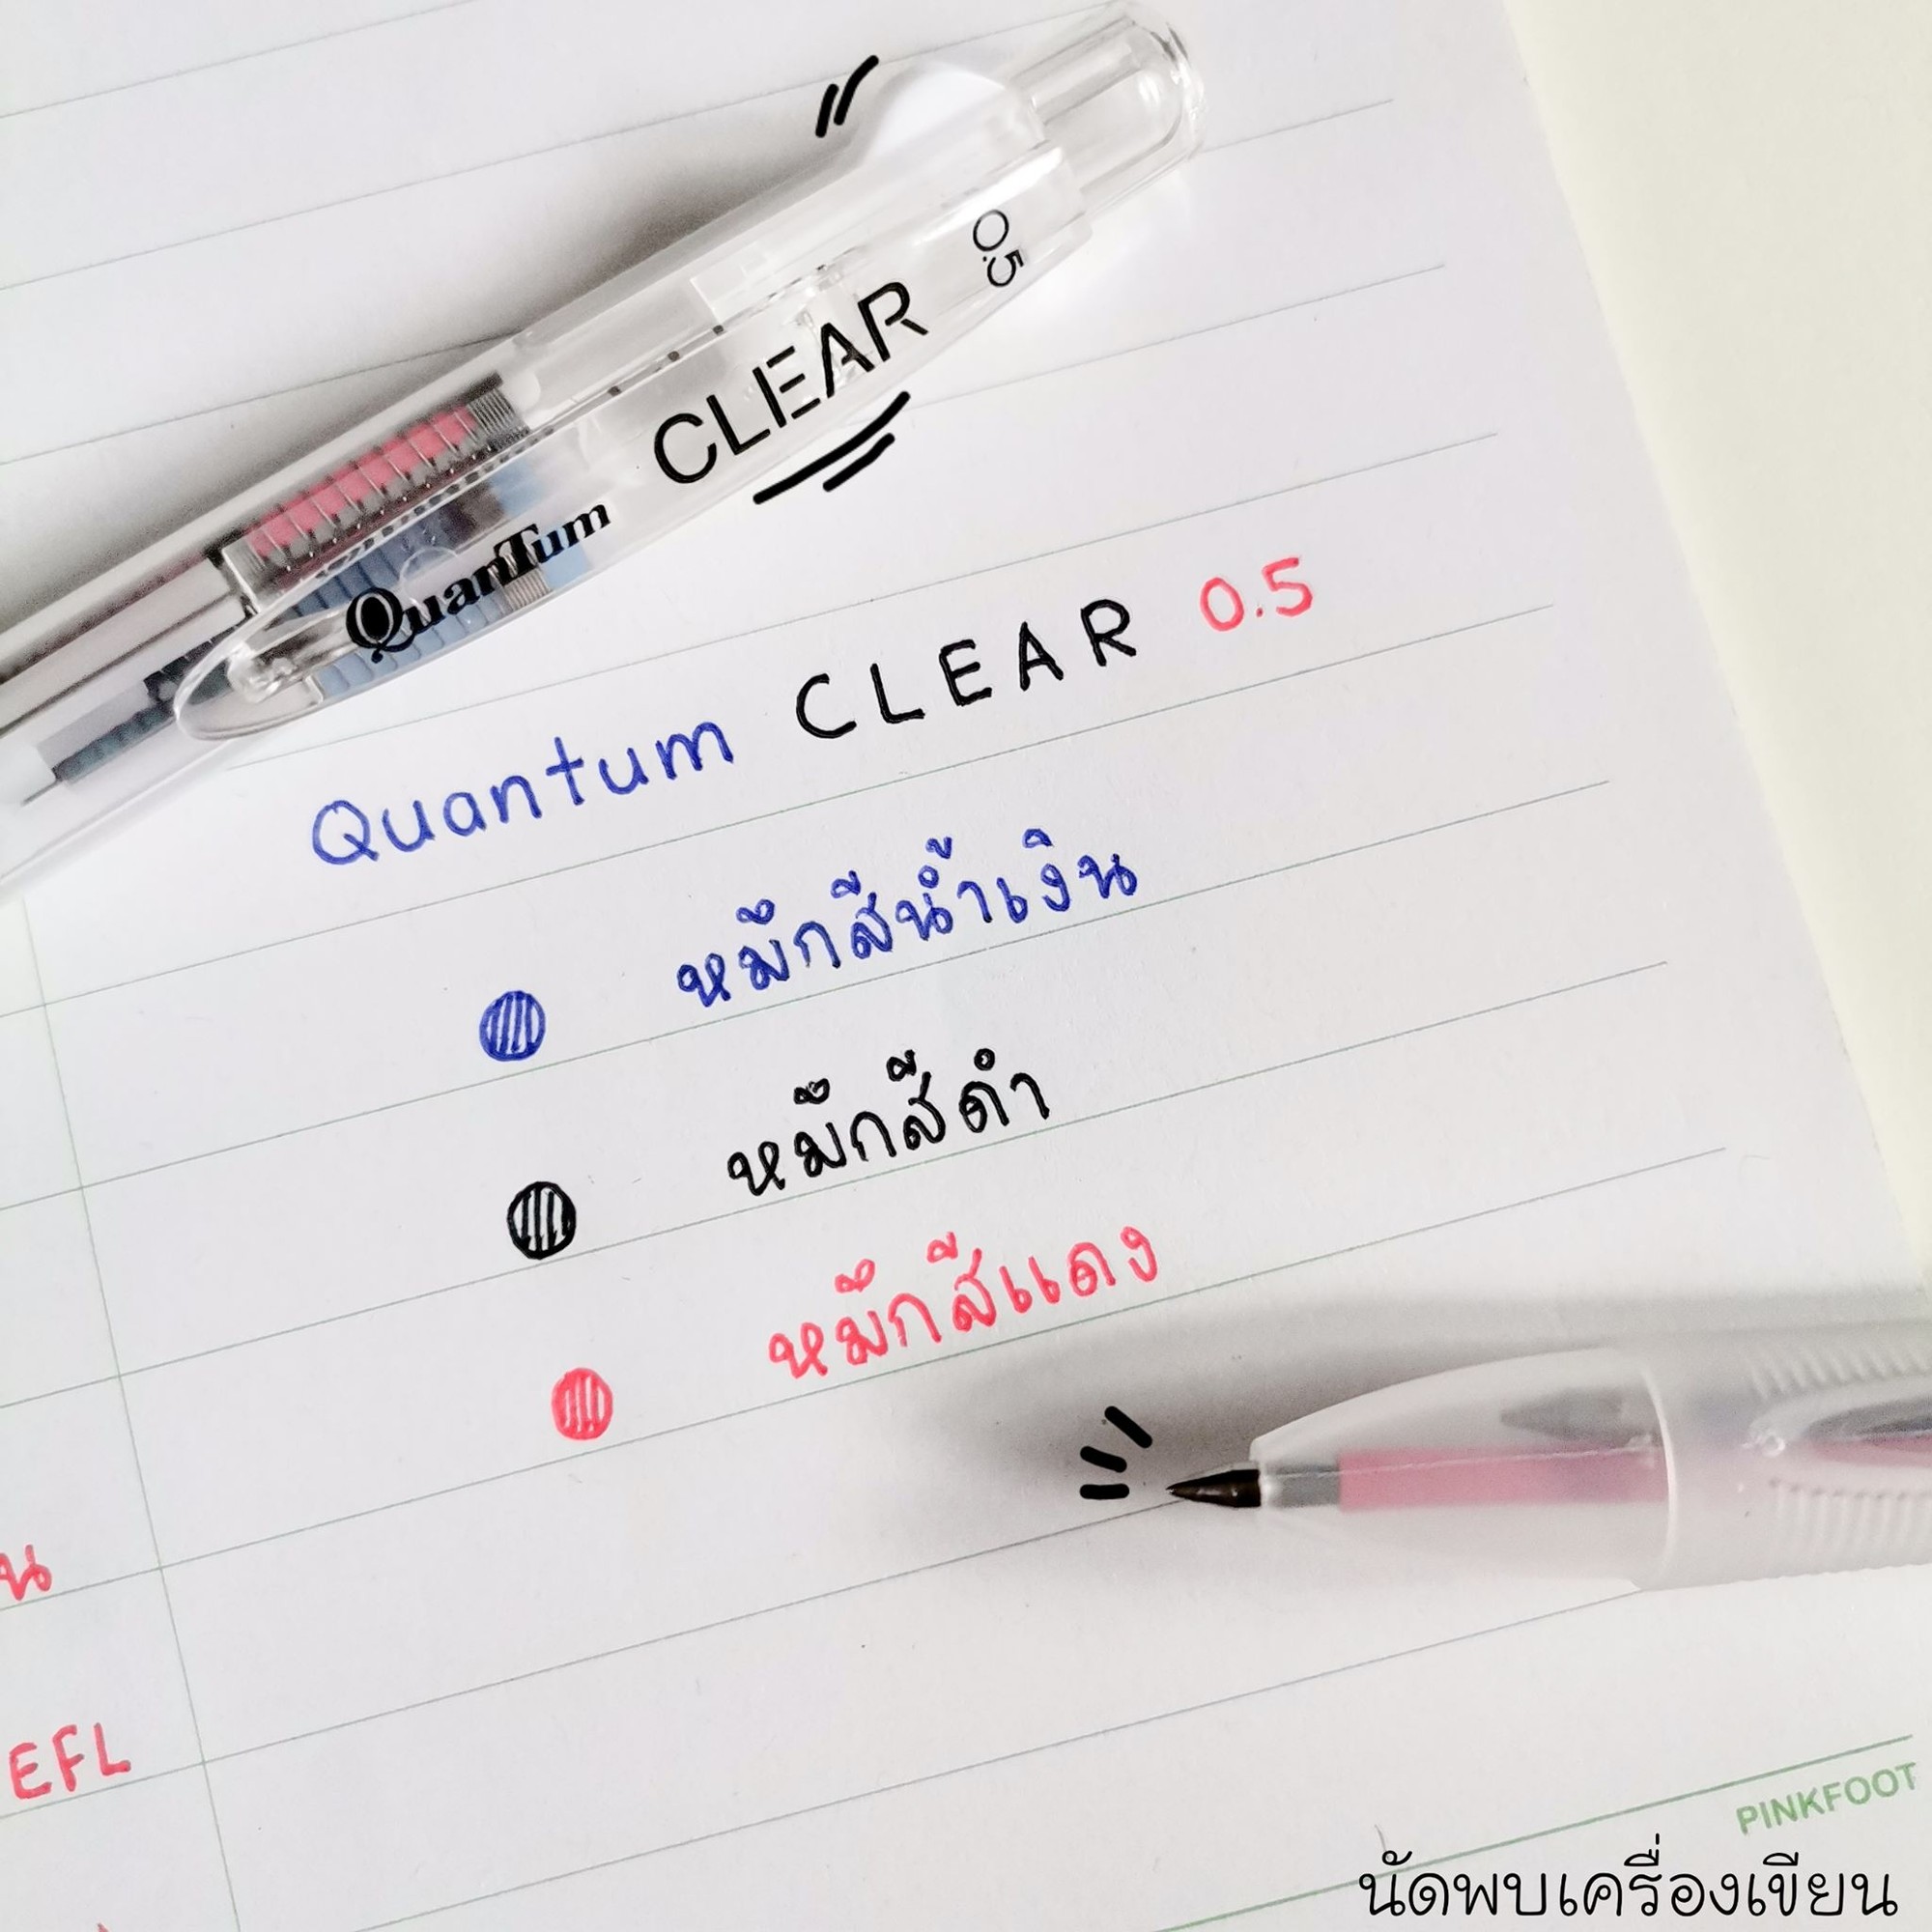 0.5
CLEAR
QuanTum
Quantum CLEAR 0.5
หมึกสีน้ำเงิน
หมึกสีดำ
หมึกสีแดง
น
EFL
PINKFOOT
นัดพบเครื่องเขียน